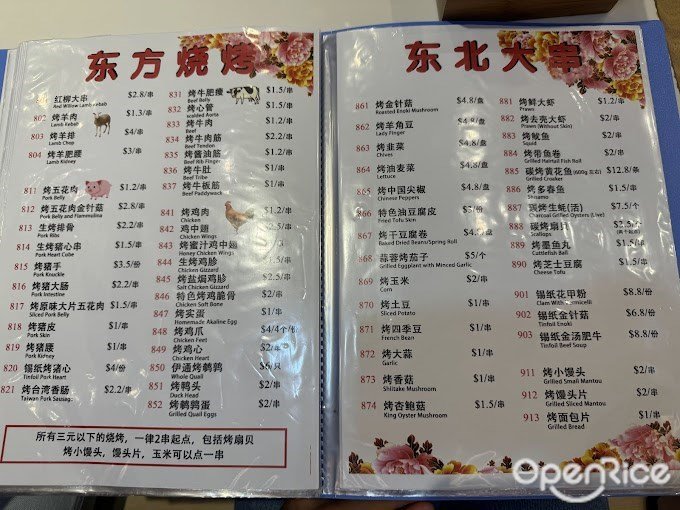 东方烧烤
红柳大串 $2.8/串
Red Willow Lamb Kebab
802 烤羊肉 $1.3/串
Lamb Kebab
803 烤羊排 $4/串
Lamb Chop
804 烤羊肥腰 $3/串
Lamb Kidney
811 烤五花肉 $1.2/串
Pork Belly
812 烤五花肉金针菇 $2/串
Pork Belly and Flammulina
813 生烤排骨 $2/串
Pork Ribs
814 生烤猪心串 $1.5/串
Pork Heart Cube
815 烤猪手 $3.5/份
Pork Knuckle
816 烤猪大肠 $2.2/串
Pork Intestine
817 烤原味大片五花肉 $1.5/串
Sliced Pork Belly
818 烤猪皮 $1/串
Pork Skin
819 烤猪腰 $1/串
Pork Kidney
820 锡纸烤猪心 $4/份
Tinfoil Pork Heart
821 烤台湾香肠 $2.2/串
Taiwan Pork Sausage
831 烤牛肥瘦 $1.5/串
Beef Belly
832 烤心管 $1.2/串
scalded Aorta
833 烤牛肉 $1/串
Beef
834 烤牛肉筋 $1.2/串
Beef Tendon
835 烤酱油筋 $1.2/串
Beef Rib Finger
836 烤牛肚 $1/串
Beef Tribe
837 烤牛板筋 $1/串
Beef Paddywack
841 烤鸡肉 $1/串
Chicken
842 鸡中翅 $2/串
Chicken Wings
843 烤蜜汁鸡中翅 $2/串
Honey Chicken Wings
844 生烤鸡胗 $1.5/串
Chicken Gizzard
845 烤盐焗鸡胗 $2.5/串
Chicken Gizzard
846 特色烤鸡脆骨 $2/串
Chicken Soft Bone
847 烤实蛋 $1/串
Homemade Akaline Egg
848 烤鸡爪 $4/4个/串
Chicken Feet
849 烤鸡心 $2/串
Chicken Heart
850 伊通烤鹌鹑 $6/只
Whole Quail
851 烤鸭头 $2/串
Duck Head
852 烤鹌鹑蛋 $2/串
Grilled Quail Eggs
所有三元以下的烧烤，一律2串起点，包括烤扇贝
烤小馒头，馒头片，玉米可以点一串
东北大串
861 烤金针菇 $4.8/盘
Roasted Enoki Mushroom
862 烤羊角豆 $4.8/盘
Lady Finger
863 烤韭菜 $4.8/盘
Chives
864 烤油麦菜 $4.8/盘
Lettuce
865 烤中国尖椒 $4.8/盘
Chinese Peppers
866 特色油豆腐皮 $3/份
Fried Tofu Skin
867 烤干豆腐卷 $2/串
Baked Dried Beans/Spring Roll
868 蒜蓉烤茄子 $5/个
Grilled Eggplant with Minced Garlic
869 烤玉米 $2/串
Corn
870 烤土豆 $1/串
Sliced Potato
871 烤四季豆 $1/串
French Bean
872 烤大蒜 $1/串
Garlic
873 烤香菇 $1/串
Shiitake Mushroom
874 烤杏鲍菇 $1.5/串
King Oyster Mushroom
881 烤鲜大虾 $1.2/串
Prawn
882 烤去壳大虾 $2/串
Prawn (Without Skin)
883 烤鱿鱼 $2/串
Squid
884 烤带鱼卷 $2/串
Grilled Hairtail Fish Roll
885 碳烤黄花鱼 (600g左右) $12.8/条
Grilled Croaker
886 烤多春鱼 $1.5/串
Shisamo
887 碳烤生蚝(活) $7.5/个
Charcoal Grilled Oysters (Live)
888 碳烤扇贝
Scallops
889 烤墨鱼丸 $1.5/串
Cuttlefish Balls
890 烤芝士豆腐 $2/串
Cheese Tofu
901 锡纸花甲粉 $8.8/份
Clam With Vermicelli
902 锡纸金针菇 $6/份
Tinfoil Enoki
903 锡纸金汤肥牛 $8.8/份
Tinfoil Beef Soup
911 烤小馒头 $2/串
Grilled Small Mantou
912 烤馒头片 $2/串
Grilled Sliced Mantou
913 烤面包片 $1/串
Grilled Bread
OpenRice